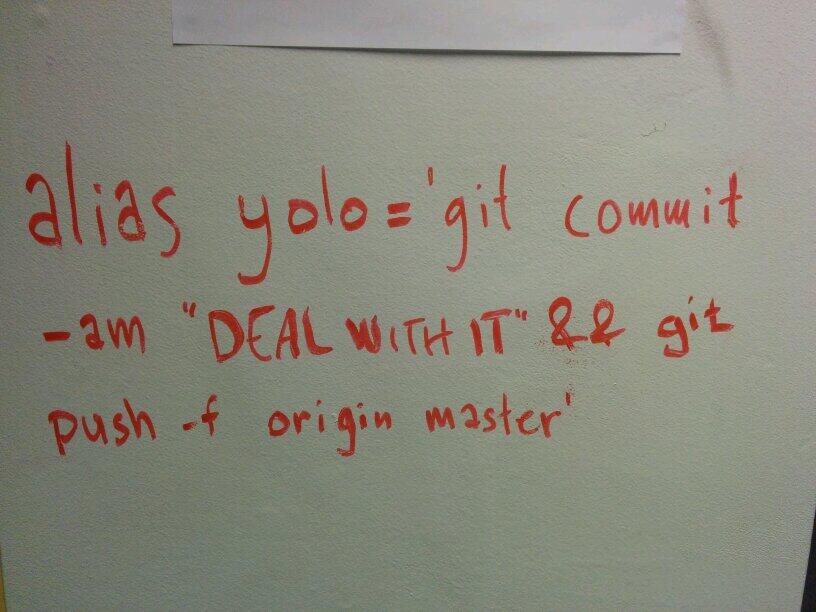 alias yolo='git commit
-am "DEAL WITH IT" && git
push -f origin master'